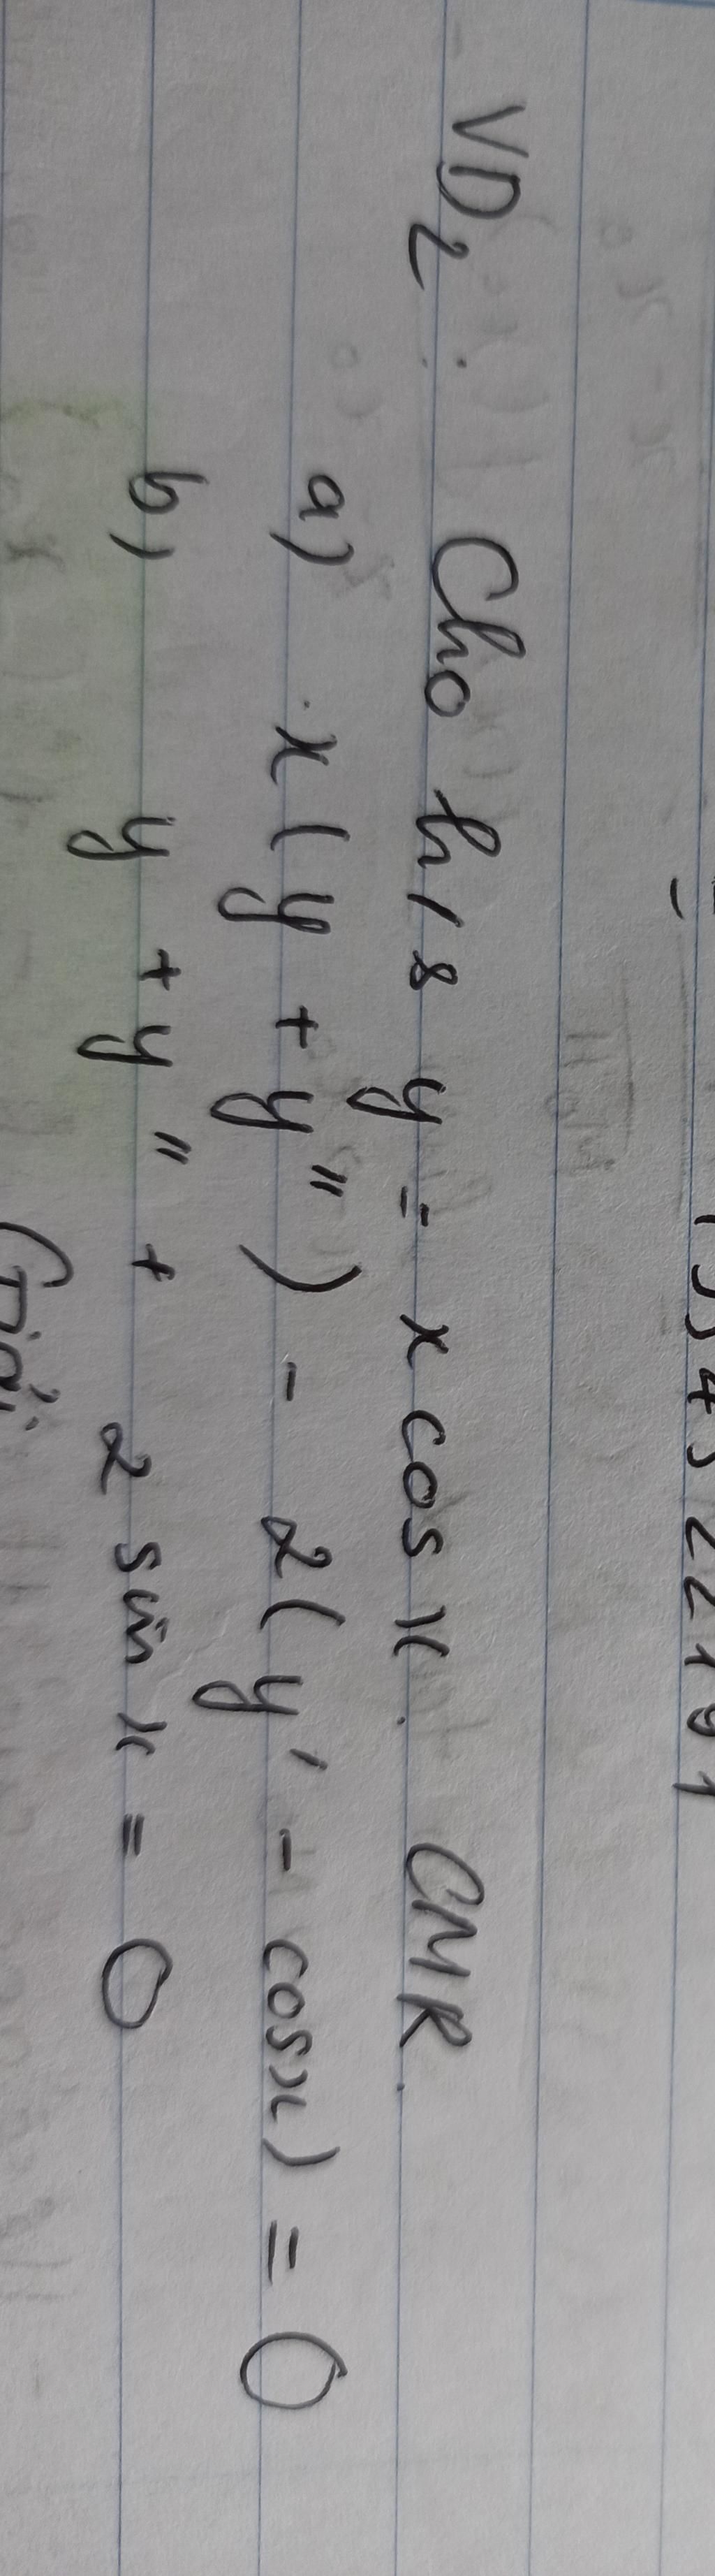 VD2: Cho h/s y = x cos x. CMR.
a) x(y + y") - 2(y' - cosx) = 0
b) y + y" + 2 sin x = 0
Giải